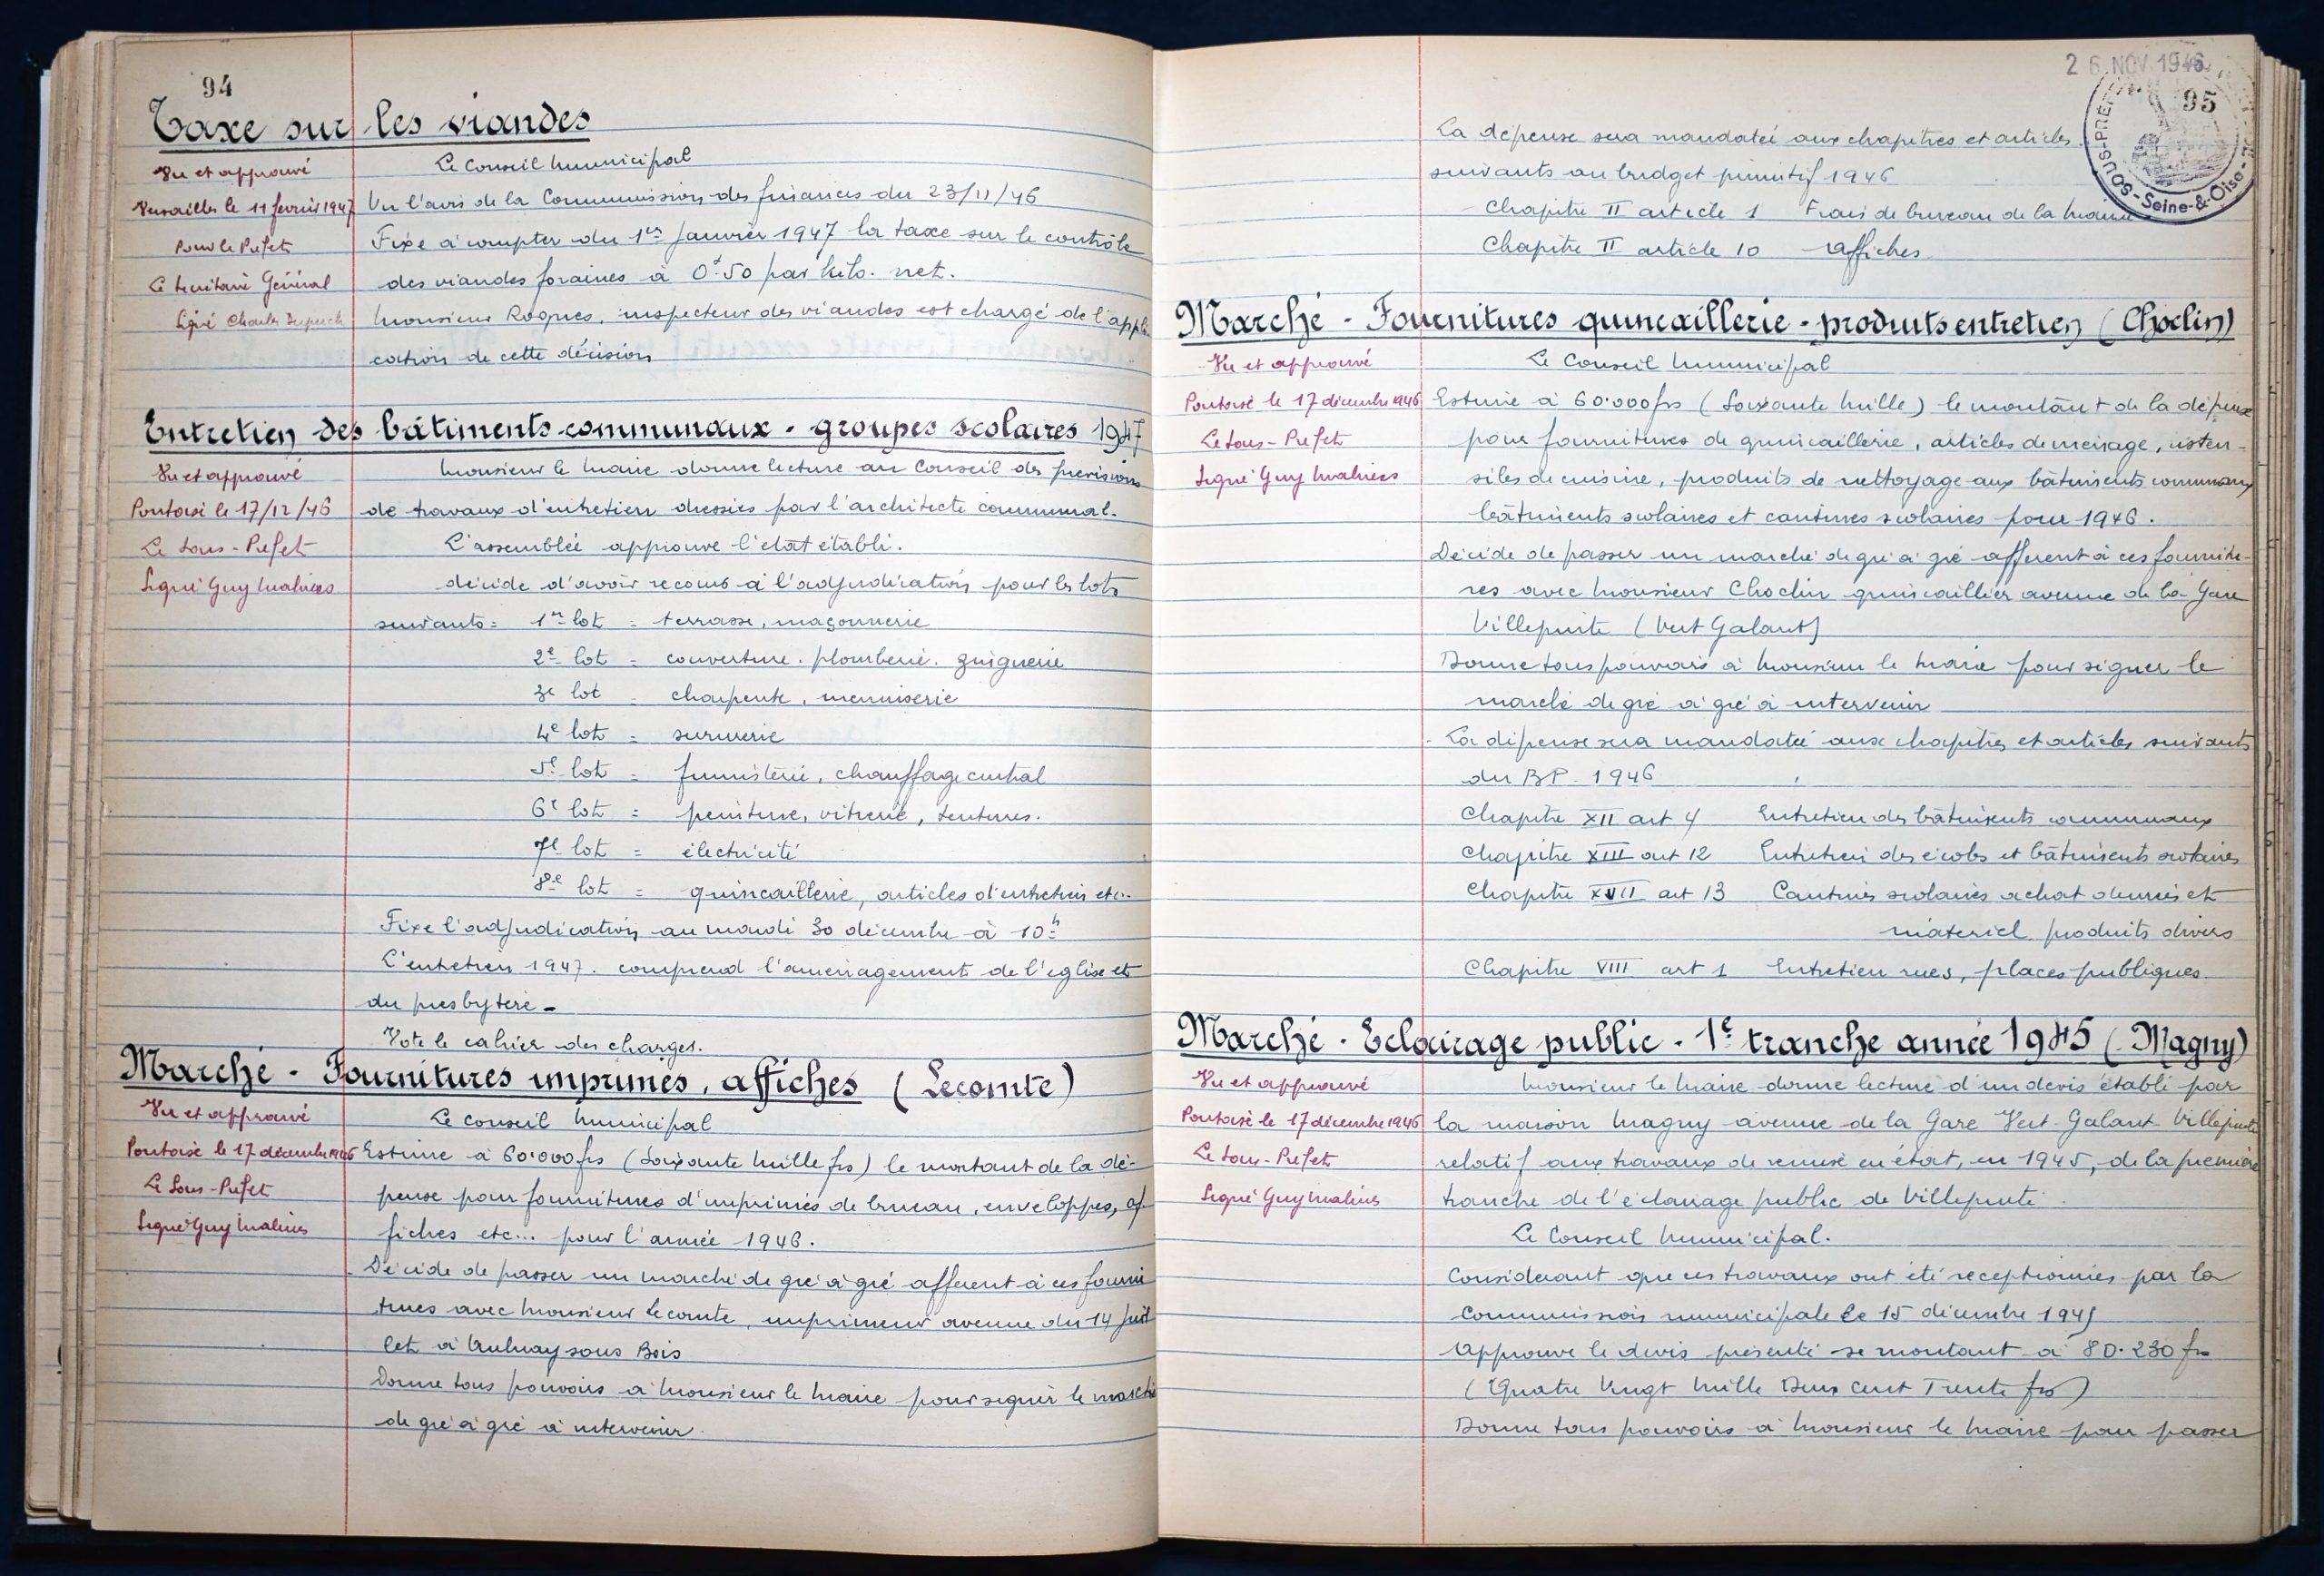 94
Taxe sur les viandes
Vu et approuvé
Versailles le 11 février 1947
Pour le Préfet
Le Secrétaire Général
Signé Charles
Le Conseil Municipal
Vu l'avis de la Commission des finances du 23/11/46
Fixe à compter du 1er Janvier 1947 la taxe sur le contrôle
des viandes foraines à 0f.50 par kilo. net.
Monsieur Roques, inspecteur des viandes est chargé de l'appli
cation de cette décision
Entretien des bâtiments communaux - groupes scolaires 1947
Vu et approuvé
Pontoise le 17/12/46
Le Sous-Préfet
Signé Guy Malines
Monsieur le Maire donne lecture au Conseil des prévisions
de travaux d'entretien dressées par l'architecte communal.
L'assemblée approuve l'état établi.
décide d'avoir recours à l'adjudication pour les lots
suivants = 1er lot = terrasse, maçonnerie
2e lot = couverture. plomberie. zinguerie
3e lot = charpente, menuiserie
4e lot = serrurerie
5e lot = fumisterie, chauffage central
6e lot = peinture, vitrerie, tentures.
7e lot = électricité
8e lot = quincaillerie, articles d'entretien etc..
Fixe l'adjudication au mardi 30 décembre à 10h
L'entretien 1947. comprend l'aménagement de l'église et
du presbytère -
Vote le cahier des charges.
Marché - Fournitures imprimés, affiches (Lecomte)
Vu et approuvé
Pontoise le 17 décembre 1946
Le Sous-Préfet
Signé Guy Malines
Le Conseil Municipal
Estime à 60.000 frs (Soixante mille frs) le montant de la dé-
pense pour fournitures d'imprimés de bureau, enveloppes, af-
fiches etc... pour l'année 1946.
Décide de passer un marché de gré à gré afférent à ces fourni
tures avec Monsieur Lecomte, imprimeur avenue du 14 Juil
let à Aulnay sous Bois
Donne tous pouvoirs à Monsieur le Maire pour signer le marché
de gré à gré à intervenir.
26 NOV 1946
95
SOUS-PRÉF
Seine-&-Oise
La dépense sera mandatée aux chapitres et articles
suivants au budget primitif 1946
Chapitre II article 1 Frais de bureau de la Mairie
Chapitre II article 10 Affiches
Marché - Fournitures quincaillerie - produits entretien (Choclin)
Vu et approuvé
Pontoise le 17 décembre 1946
Le Sous-Préfet
Signé Guy Malines
Le Conseil Municipal
Estime à 60.000 frs (Soixante mille) le montant de la dépense
pour fournitures de quincaillerie, articles de ménage, usten-
siles de cuisine, produits de nettoyage aux bâtiments communaux
bâtiments scolaires et cantines scolaires pour 1946.
Décide de passer un marché de gré à gré afférent à ces fournitu-
res avec Monsieur Choclin quincaillier avenue de la Gare
Villepinte (Vert Galant)
Donne tous pouvoirs à Monsieur le Maire pour signer le
marché de gré à gré à intervenir
La dépense sera mandatée aux chapitres et articles suivants
du BP. 1946
Chapitre XII art 4 Entretien des bâtiments communaux
Chapitre XIII art 12 Entretien des écoles et bâtiments scolaires
Chapitre XVII art 13 Cantines scolaires achat denrées et
matériel produits divers
Chapitre VIII art 1 Entretien rues, places publiques.
Marché - Eclairage public - 1e tranche année 1945 (Magny)
Vu et approuvé
Pontoise le 17 décembre 1946
Le Sous-Préfet
Signé Guy Malines
Monsieur le Maire donne lecture d'un devis établi par
la maison Magny avenue de la Gare Vert-Galant Villepinte
relatif aux travaux de remise en état, en 1945, de la première
tranche de l'éclairage public de Villepinte.
Le Conseil Municipal.
Considérant que ces travaux ont été réceptionnés par la
Commission municipale le 15 décembre 1945
Approuve le devis présenté se montant à 80.230 frs
(Quatre Vingt Mille Deux Cent Trente frs)
Donne tous pouvoirs à Monsieur le Maire pour passer